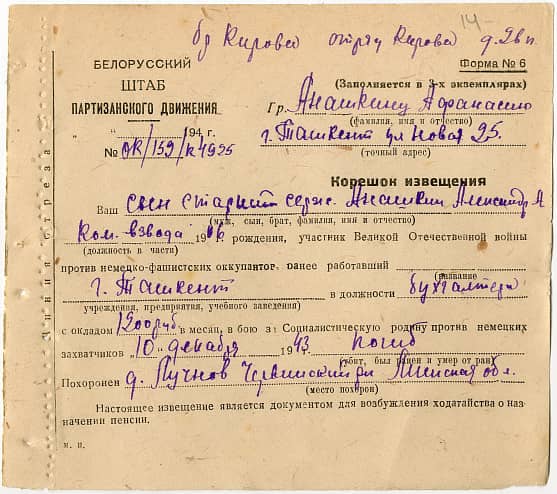 14-
бр Кирова отряд Кирова д.2вп
БЕЛОРУССКИЙ
ШТАБ
ПАРТИЗАНСКОГО ДВИЖЕНИЯ
" " 194 г.
№ ОК/159/к 4935
Форма № 6
(Заполняется в 3-х экземплярах)
Гр. Анашкину Афанасию
(фамилия, имя и отчество)
г. Ташкент ул Новая 25.
(точный адрес)
Линия отреза
Корешок извещения
Ваш сын старший серж. Анашкин Александр А
(муж, сын, брат, фамилия, имя и отчество)
Ком. взвода 19 рождения, участник Великой Отечественной войны
(должность в части)
против немецко-фашистских оккупантов. ранее работавший
(название
г. Ташкент в должности бухгалтера
учреждения, предприятия, учебного заведения)
с окладом 1200 руб в месяц, в бою за Социалистическую родину против немецких
захватчиков 10 декабря 1943 погиб
(убит, был ранен и умер от ран)
Похоронен д. Лучнов Червенский р-н Минская обл.
(место похорон)
Настоящее извещение является документом для возбуждения ходатайства о наз-
начении пенсии.
м. п.